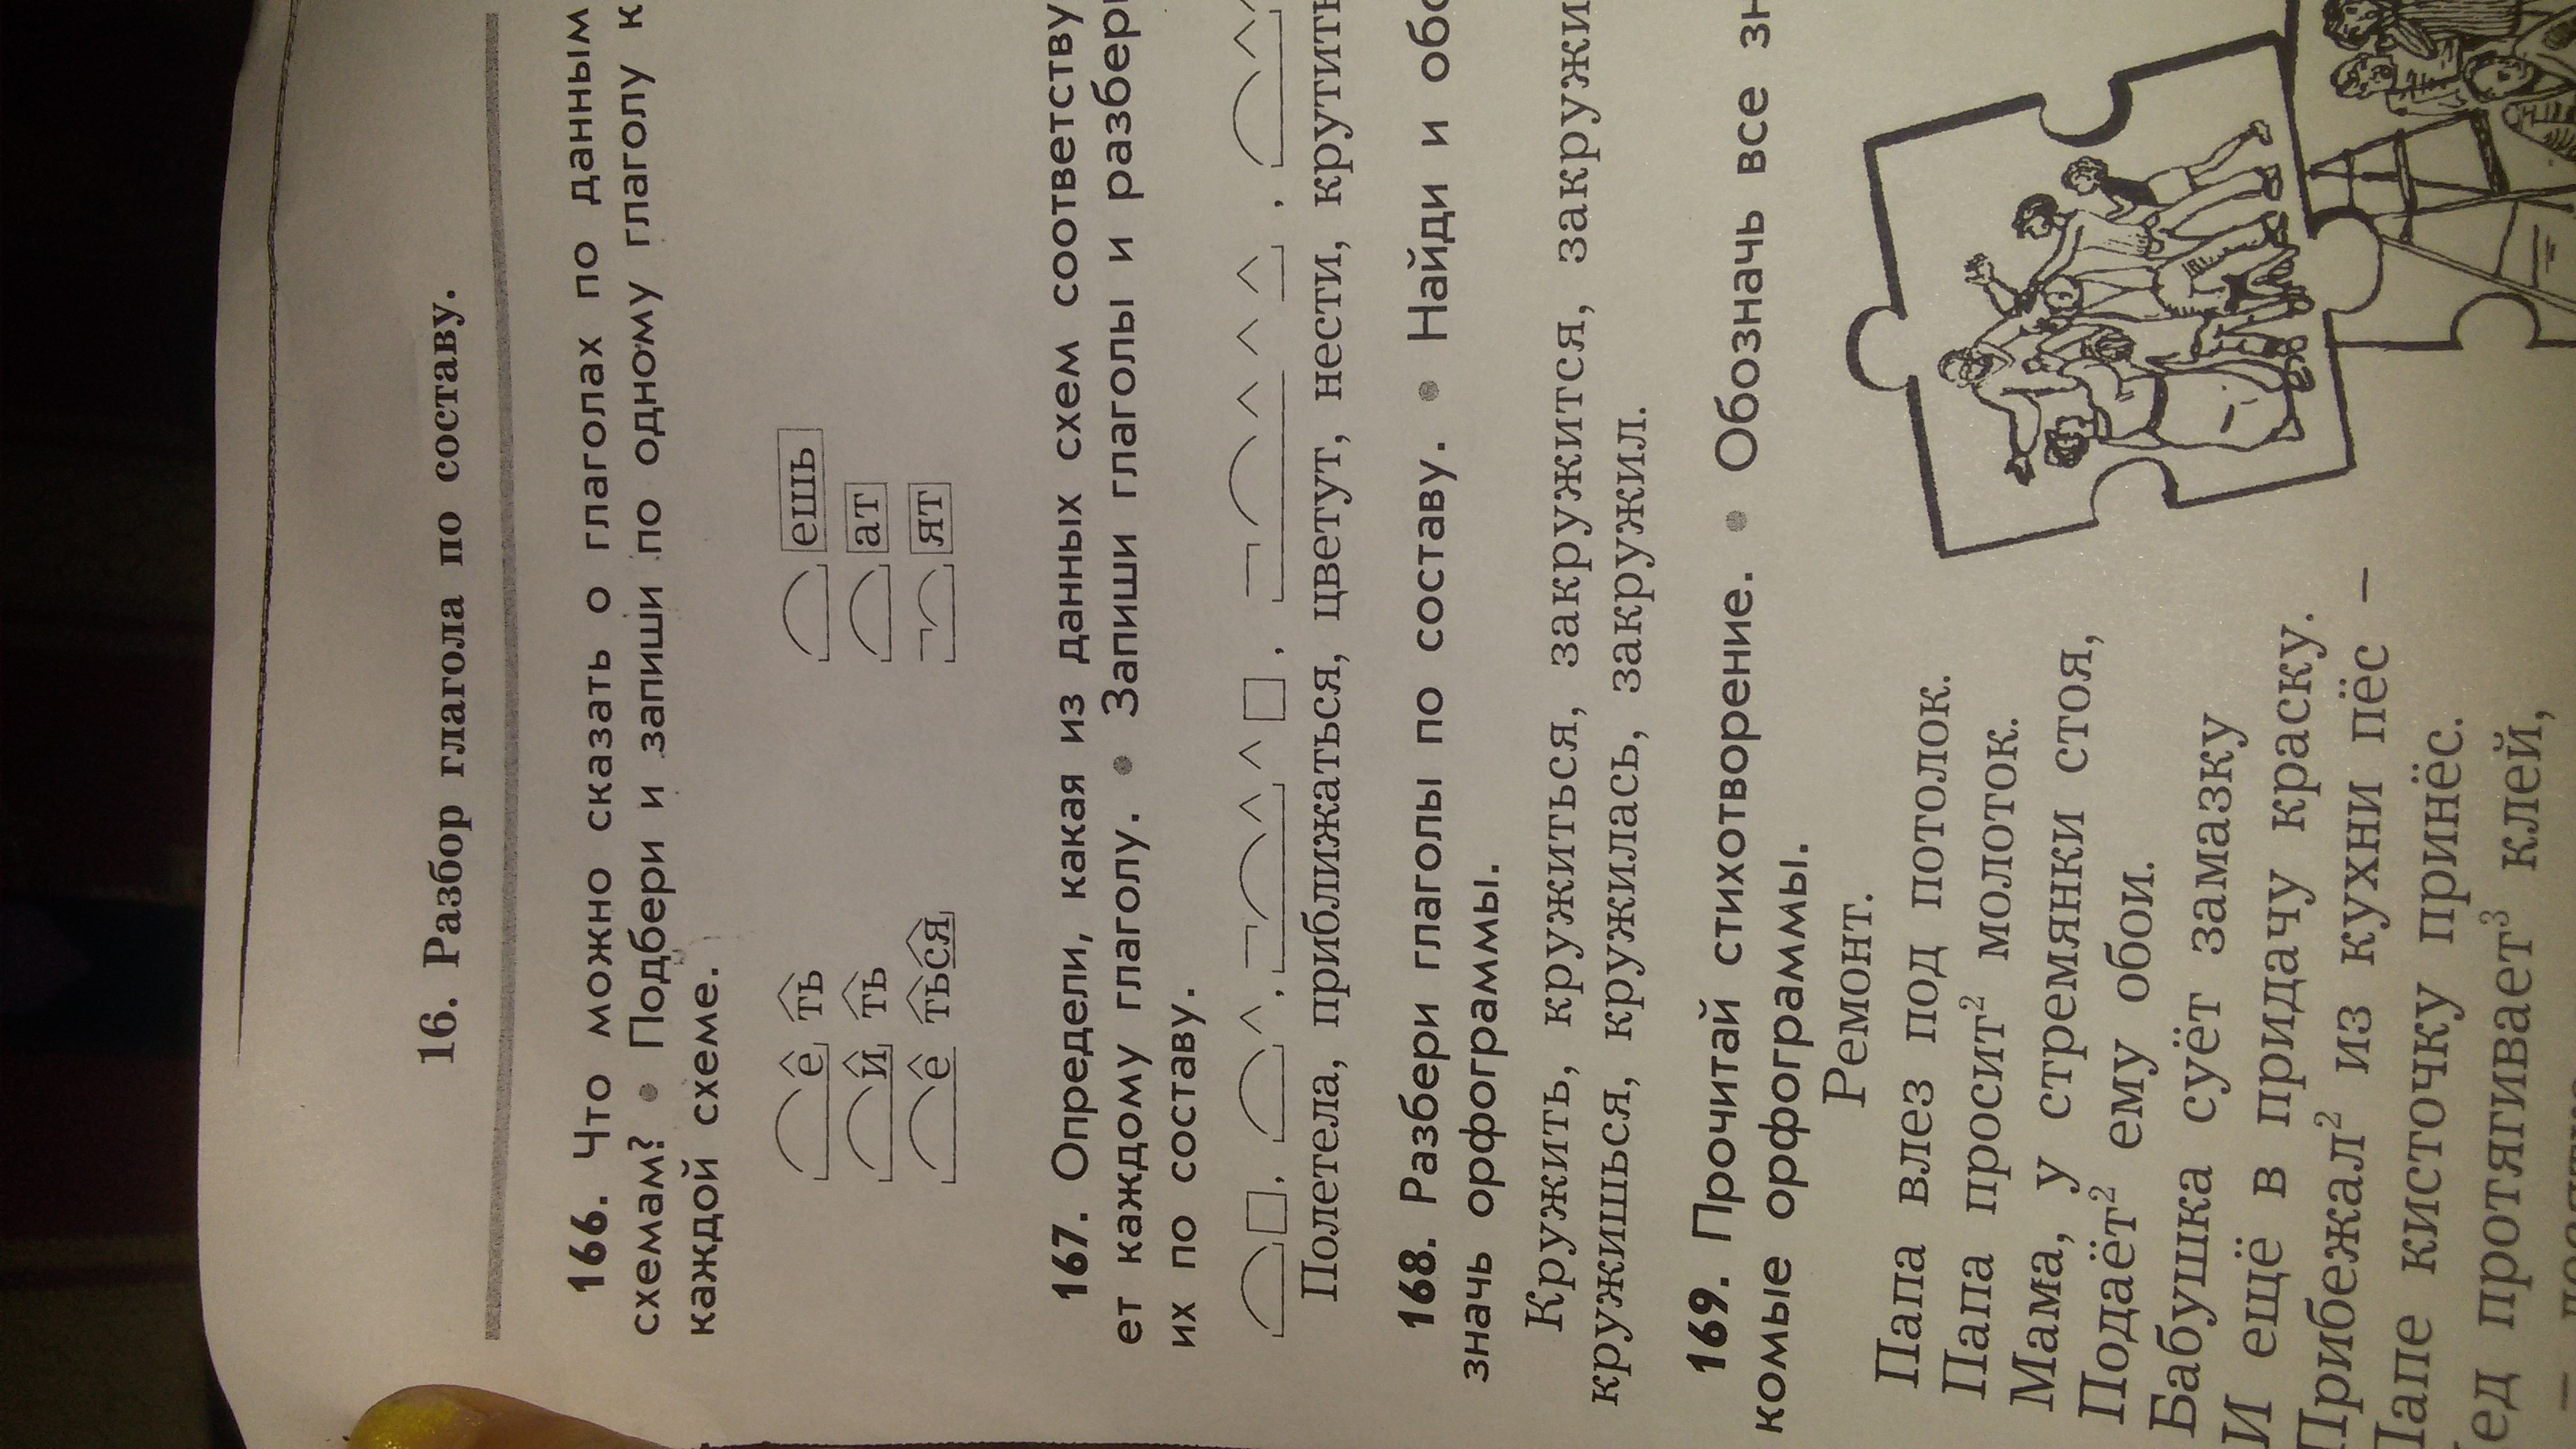 16. Разбор глагола по составу.
166. Что можно сказать о глаголах по данным
схемам? • Подбери и запиши по одному глаголу к
каждой схеме.
е ть ешь
и ть ат
е ться ят
167. Определи, какая из данных схем соответству
ет каждому глаголу. • Запиши глаголы и разбери
их по составу.
Полетела, приближаться, цветут, нести, крутить
168. Разбери глаголы по составу. • Найди и обо
значь орфограммы.
Кружить, кружиться, закружится, закружи
кружишься, кружилась, закружил.
169. Прочитай стихотворение. • Обозначь все зн
комые орфограммы.
Ремонт.
Папа влез под потолок.
Папа просит² молоток.
Мама, у стремянки стоя,
Подаёт² ему обои.
Бабушка суёт замазку
И ещё в придачу краску.
Прибежал² из кухни пёс –
Папе кисточку принёс.
ед протягивает³ клей,